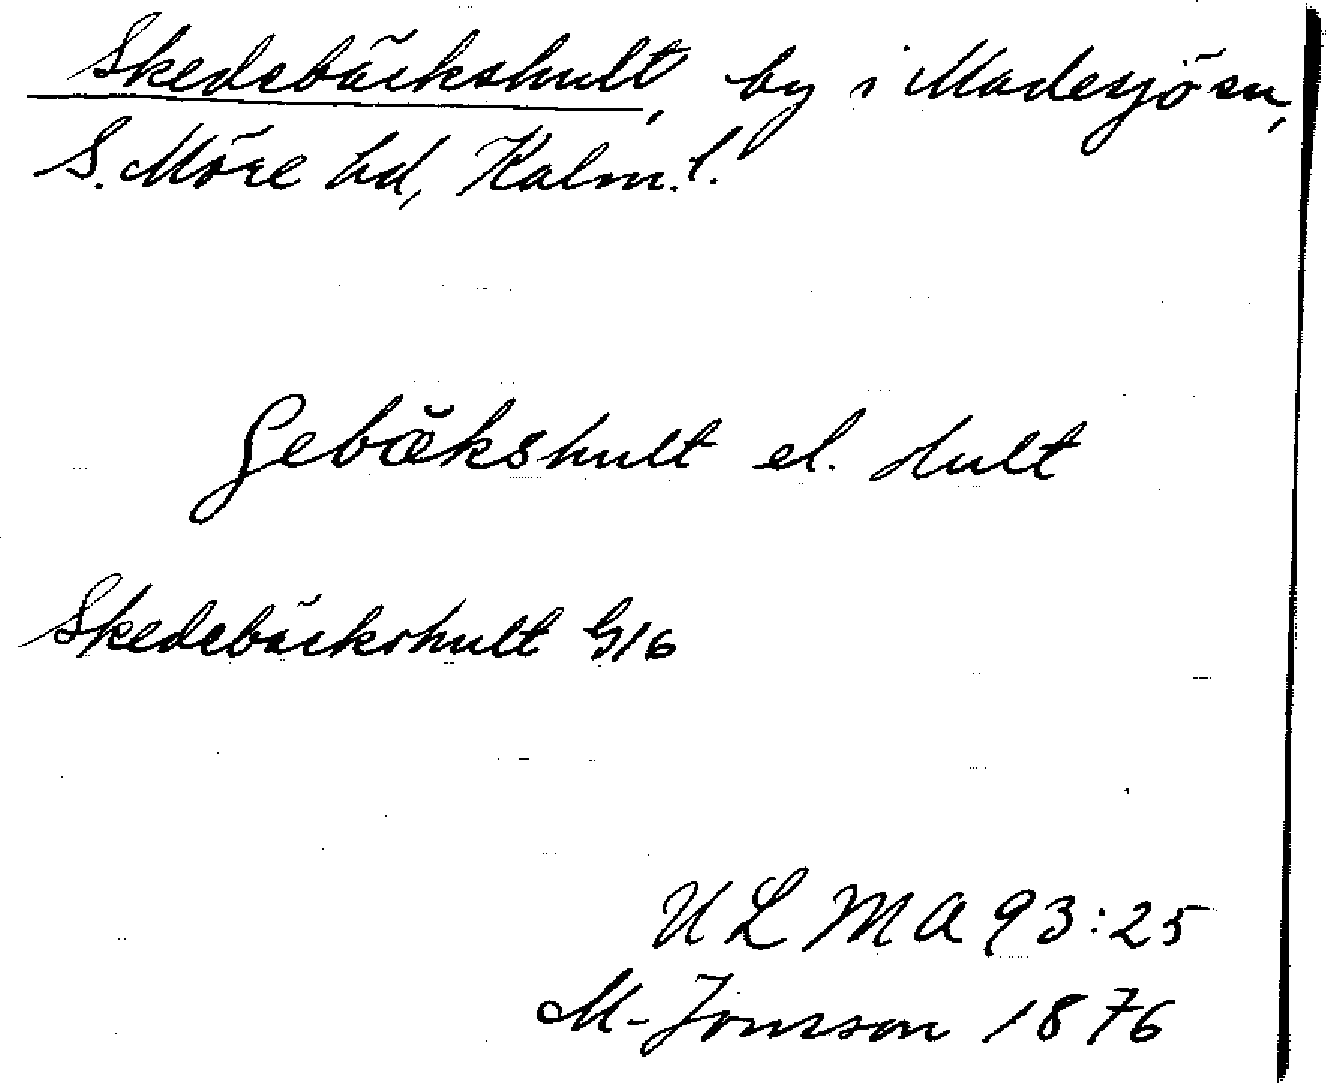 Skedebäckshult, by i Madesjö sn,
S. Möre hd, Kalm. l.
Sebækshult el. Hult
Skedebäckshult G16
ULMA 93:25
M. Jonsson 1876